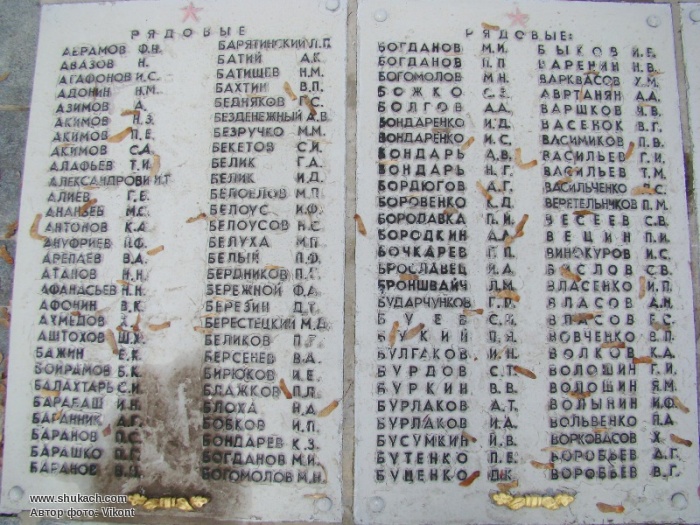 РЯДОВЫЕ
АБРАМОВ Ф.Я.
АВАЗОВ Н.
АГАФОНОВ И.С.
АДОНИН Н.М.
АЗИМОВ А.
АКИМОВ Н.З.
АКИМОВ П.Е.
АКИМОВ С.А.
АЛАФЬЕВ Т.И.
АЛЕКСАНДРОВ И.Т.
АЛИЕВ Г.Б.
АНАНЬЕВ М.С.
АНТОНОВ К.А.
АНУФРИЕВ
АРЕПАЕВ В.А.
АТАНОВ Н.Н.
АФАНАСЬЕВ Н.Н.
АФОНИН В.К.
АХМЕДОВ
АШТОХОВ Ш.Х.
БАЖИН Е.К.
БОЙРАМОВ Б.К.
БАЛАХТАРЬ С.И.
БАРАБАШ И.Н.
БАРАННИК А.Г.
БАРАНОВ П.С.
БАРАШКО П.Г.
БАРАНОВ
БАРЯТИНСКИЙ Л.Г.
БАТИЙ А.К.
БАТИЩЕВ Н.М.
БАХТИН В.П.
БЕДНЯКОВ Г.С.
БЕЗДЕНЕЖНЫЙ А.В.
БЕЗРУЧКО М.М.
БЕКЕТОВ С.И.
БЕЛИК Г.А.
БЕЛИК И.Д.
БЕЛОБЛОВ М.П.
БЕЛОУС И.Ф.
БЕЛОУСОВ Н.С.
БЕЛУХА М.П.
БЕЛЫЙ П.Ф.
БЕРДНИКОВ
БЕРЕЖНОЙ Ф.А.
БЕРЕЗИН Д.Т.
БЕРЕСТЕЦКИЙ М.Д.
БЕЛИКОВ
БЕРСЕНЕВ В.А.
БИРЮКОВ И.Е.
БЛАЖКОВ П.П.
БЛОХА Н.А.
БОБКОВ И.П.
БОНДАРЕВ К.З.
БОГДАНОВ М.И.
БОГОМОЛОВ М.Н.
РЯДОВЫЕ:
БОГДАНОВ М.И.
БОГДАНОВ П.П.
БОГОМОЛОВ М.Н.
БОЖКО С.Е.
БОЛГОВ А.А.
БОНДАРЕНКО И.Д.
БОНДАРЕНКО И.С.
БОНДАРЬ А.В.
БОНДАРЬ Н.Г.
БОРДЮГОВ А.Г.
БОРОВЕНКО К.Д.
БОРОДАВКА П.И.
БОРОДКИН А.А.
БОЧКАРЕВ Г.П.
БРОСЛАВЕЦ Я.А.
БРОНШВАЙЧ Л.М.
БУДАРЧУНКОВ Г.Р.
БУЕВ С.Я.
БУКИН П.Я.
БУЛГАКОВ И.Н.
БУРДОВ С.Т.
БУРКИН В.В.
БУРЛАКОВ А.Т.
БУРЛАКОВ И.А.
БУСУМКИН Й.В.
БУТЕНКО П.Е.
БУЦЕНКО
БЫКОВ И.Е.
ВАРЕНЯ И.В.
ВАРКВАСОВ Х.М.
АВРТАНЯН А.А.
ВАРШКОВ Я.В.
ВАСЕНОК В.Г.
ВАСИМИКОВ П.В.
ВАСИЛЬЕВ Г.И.
ВАСИЛЬЕВ Т.М.
ВАСИЛЬЧЕНКО П.С.
ВЕРЕТЕЛЬНИКОВ П.М.
ВЕСЕЕВ С.В.
ВЕЦИН П.И.
ВИНОКУРОВ И.С.
ВИСЛОВ С.В.
ВЛАСЕНКО И.П.
ВЛАСОВ А.Н.
ВЛАСОВ Е.С.
ВОВЧЕНКО В.П.
ВОЛКОВ К.А.
ВОЛОШИН Г.И.
ВОЛОШИН Я.М.
ВОЛЫНИН И.Ф.
ВОЛЬВЕНКО П.А.
ВОРКОВАСОВ Х.
ВОРОБЬЕВ Д.Г.
ВОРОБЬЕВ В.Г.
www.shukach.com
Автор фото: Vikont